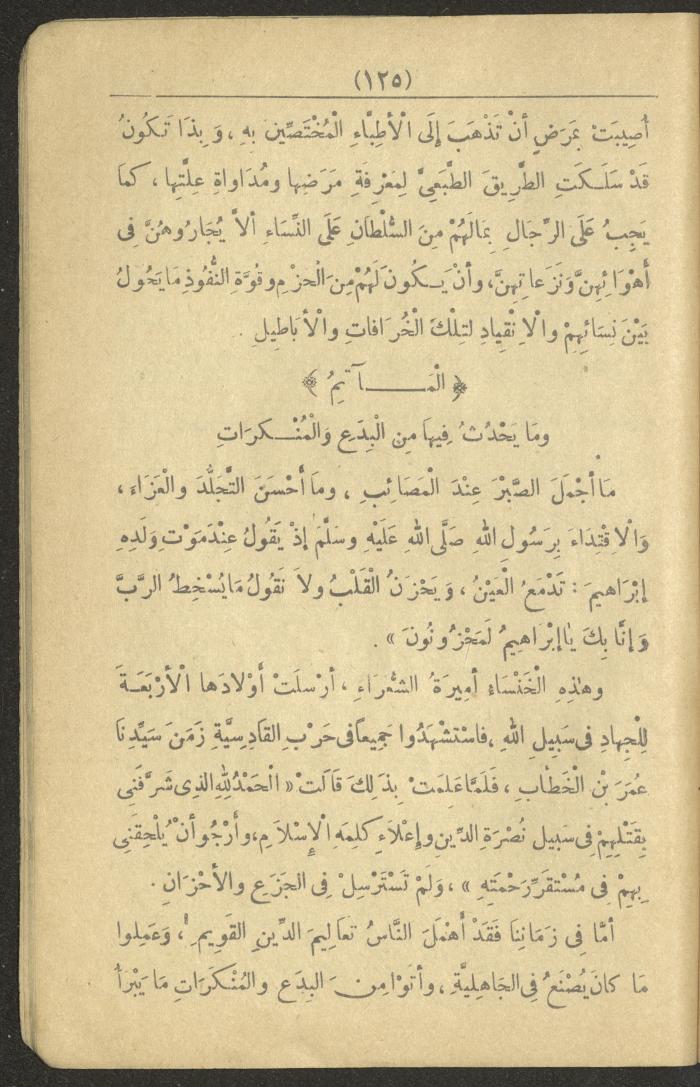 (١٢٥)
أُصِيبَتْ بِمَرَضٍ أَنْ تَذْهَبَ إِلَى الْأَطِبَّاءِ الْمُخْتَصِّينَ بِهِ ، وَبِذَا تَكُونُ
قَدْ سَلَكَتِ الطَّرِيقَ الطَّبَعِيَّ لِمَعْرِفَةِ مَرَضِهَا وَمُدَاوَاةِ عِلَّتِهَا ، كَمَا
يَجِبُ عَلَى الرِّجَالِ بِمَالَهُمْ مِنَ السُّلْطَانِ عَلَى النِّسَاءِ أَلاَّ يُجَارُوهُنَّ فِى
أَهْوَائِهِنَّ وَنَزَعَاتِهِنَّ، وأَنْ يَكُونَ لَهُمْ مِنَ الْحَزْمِ وقُوَّةِ النُّفُوذِ مَا يَحُولُ
بَيْنَ نِسَائِهِمْ والْانْقِيادِ لتِلْكَ الْخُرَافَاتِ والْأَبَاطِيلِ .
﴿ الْمَـــآتِمُ ﴾
ومَا يَحْدُثُ فِيهَا مِنَ الْبِدَعِ وَالْمُنْكَرَاتِ
مَا أَجْمَلَ الصَّبْرَ عِنْدَ الْمَصَائِبِ ، ومَا أَحْسَنَ التَّجَلُّدَ والْعَزَاءَ ،
وَالْاقْتِدَاءَ بِرَسُولِ اللهِ صَلَّى اللهُ عَلَيْهِ وسَلَّمَ إِذْ يَقُولُ عِنْدَ مَوْتِ وَلَدِهِ
إِبْرَاهِيمَ : تَدْمَعُ الْعَيْنُ ، وَيَحْزَنُ الْقَلْبُ ولاَ نَقُولُ مَا يُسْخِطُ الرَّبَّ
وَإِنَّا بِكَ يَا إِبْرَاهِيمُ لَمَحْزُونُونَ » .
وهٰذِهِ الْخَنْسَاءِ أَمِيرَةُ الشُّعَرَاءِ ، أَرْسَلَتْ أَوْلاَدَهَا الْأَرْبَعَةَ
لِلْجِهادِ فِى سَبِيلِ اللهِ ، فاسْتُشْهِدُوا جَمِيعاً فى حَرْبِ القَادِسِيَّةِ زَمَنَ سَيِّدِنَا
عُمَرَ بْنِ الْخَطَّابِ ، فَلَمَّا عَلِمَتْ بِذَلِكَ قَالَتْ « الْحَمْدُ لِلهِ الذِى شَرَّفَنِى
بِقَتْلِهِمْ فِى سَبِيلِ نُصْرَةِ الدِّينِ وإِعْلاَءِ كَلِمَةِ الْإِسْلاَمِ ، وأَرْجُو أَنْ يُلْحِقَنِى
بِهِمْ فِى مُسْتَقَرِّ رَحْمَتِهِ » ، وَلَمْ تَسْتَرْسِلْ فِى الجَزَعِ والأَحْزَانِ .
أمَّا فِى زَمَانِنَا فَقَدْ أَهْمَلَ النَّاسُ تَعَالِيمَ الدِّينِ القَوِيمِ ، وَعَمِلوا
مَا كَانَ يُصْنَعُ فِى الجَاهِليَّةِ ، وأَتَوْا مِنَ البِدَعِ والمُنْكَرَاتِ مَا يَبْرَأُ